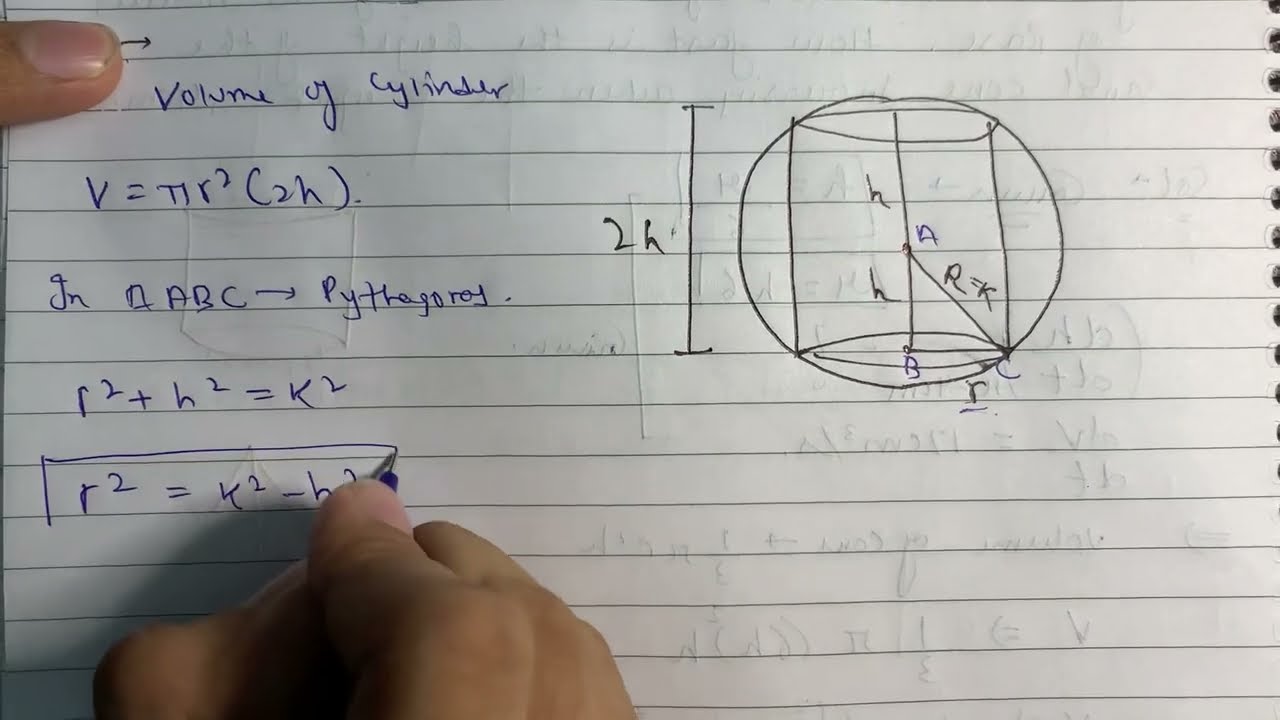 →
Volume of Cylinder
V = πr²(2h).
In △ABC → Pythagores.
r² + h² = K²
r² = K² - h²
2h
h
A
h
R=K
B
C
r